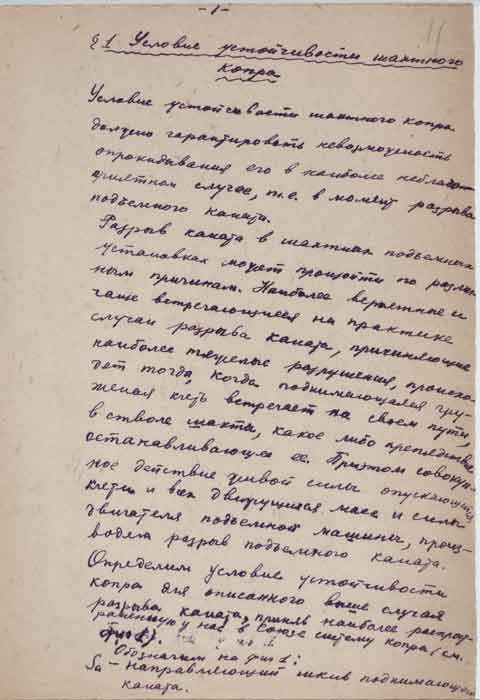 - 1 -
§1 Условие устойчивости шахтного
копра
Условие устойчивости шахтного копра
должно гарантировать невозможность
опрокидывания его в наиболее неблагоп-
риятном случае, т.е. в момент разрыва
подъемного каната.
Разрыв каната в шахтных подъемных
установках может произойти по различ
ным причинам. Наиболее вероятные и
чаще встречающиеся на практике
случаи разрыва каната, причиняющие
наиболее тяжелые разрушения, происхо-
дят тогда, когда поднимающаяся гру-
женая клеть встречает на своем пути,
в стволе шахты, какое либо препятствие
останавливающее ее. При этом совокуп-
ное действие живой силы опускающейся
клети и всех движущихся масс и силы
двигателя подъемной машины, произ-
водят разрыв подъемного каната.
Определим условие устойчивости
копра для описанного выше случая
разрыва каната, приняв наиболее распрост-
раненную у нас в Союзе систему копра (см.
фиг 1).
Обозначим на фиг 1:
Sn - направляющий шкив поднимающегося
каната.